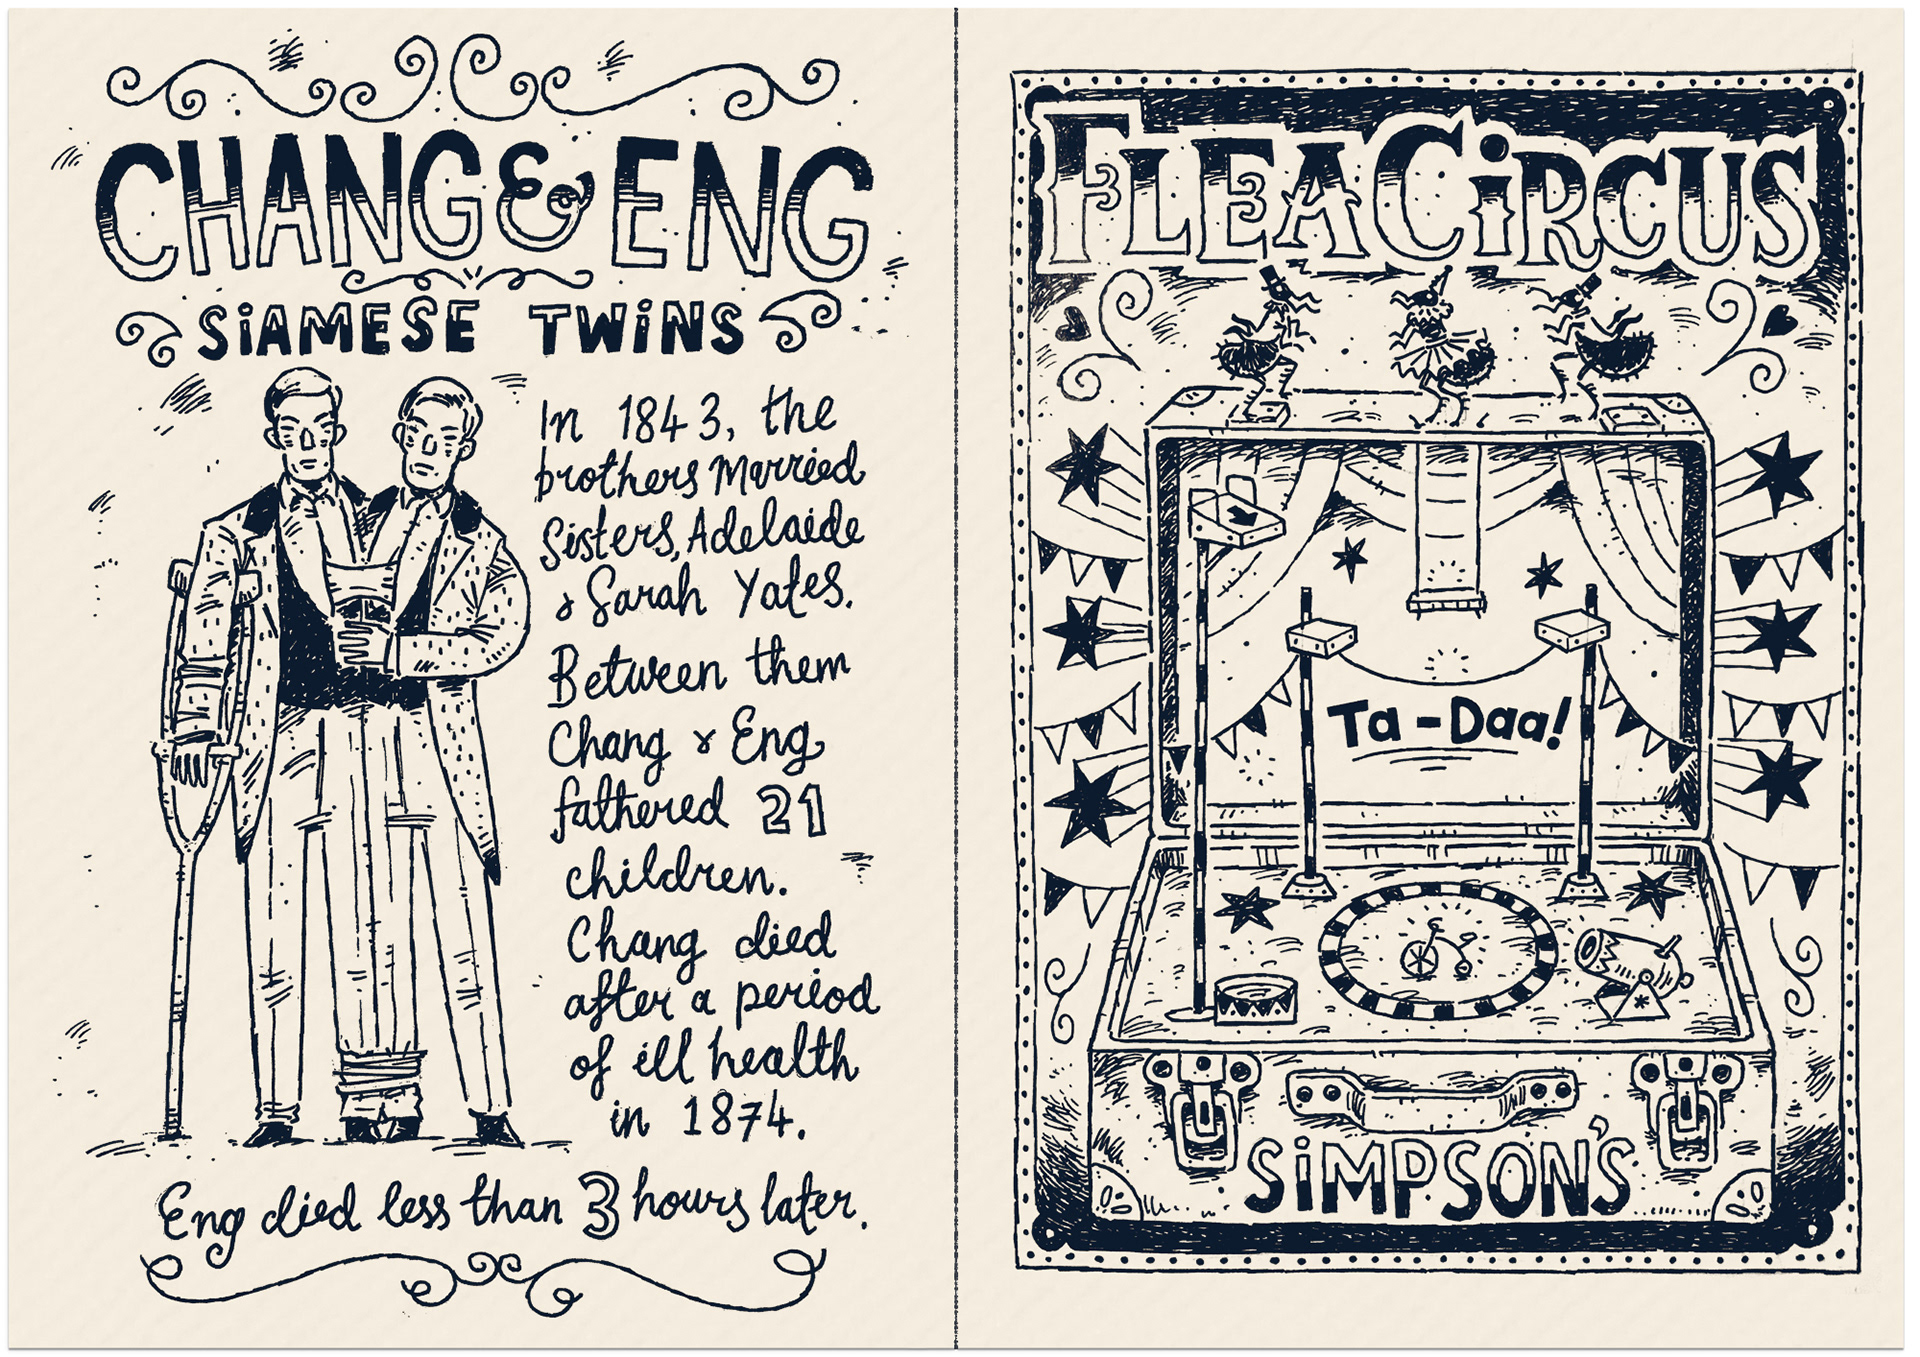 CHANG & ENG
SiAMESE TWiNS
In 1843, the
brothers Married
Sisters, Adelaide
& Sarah Yates.
Between them
Chang & Eng
fathered 21
children.
Chang died
after a period
of ill health
in 1874.
Eng died less than 3 hours later.
FLEA CiRCUS
Ta-Daa!
SiMPSON'S